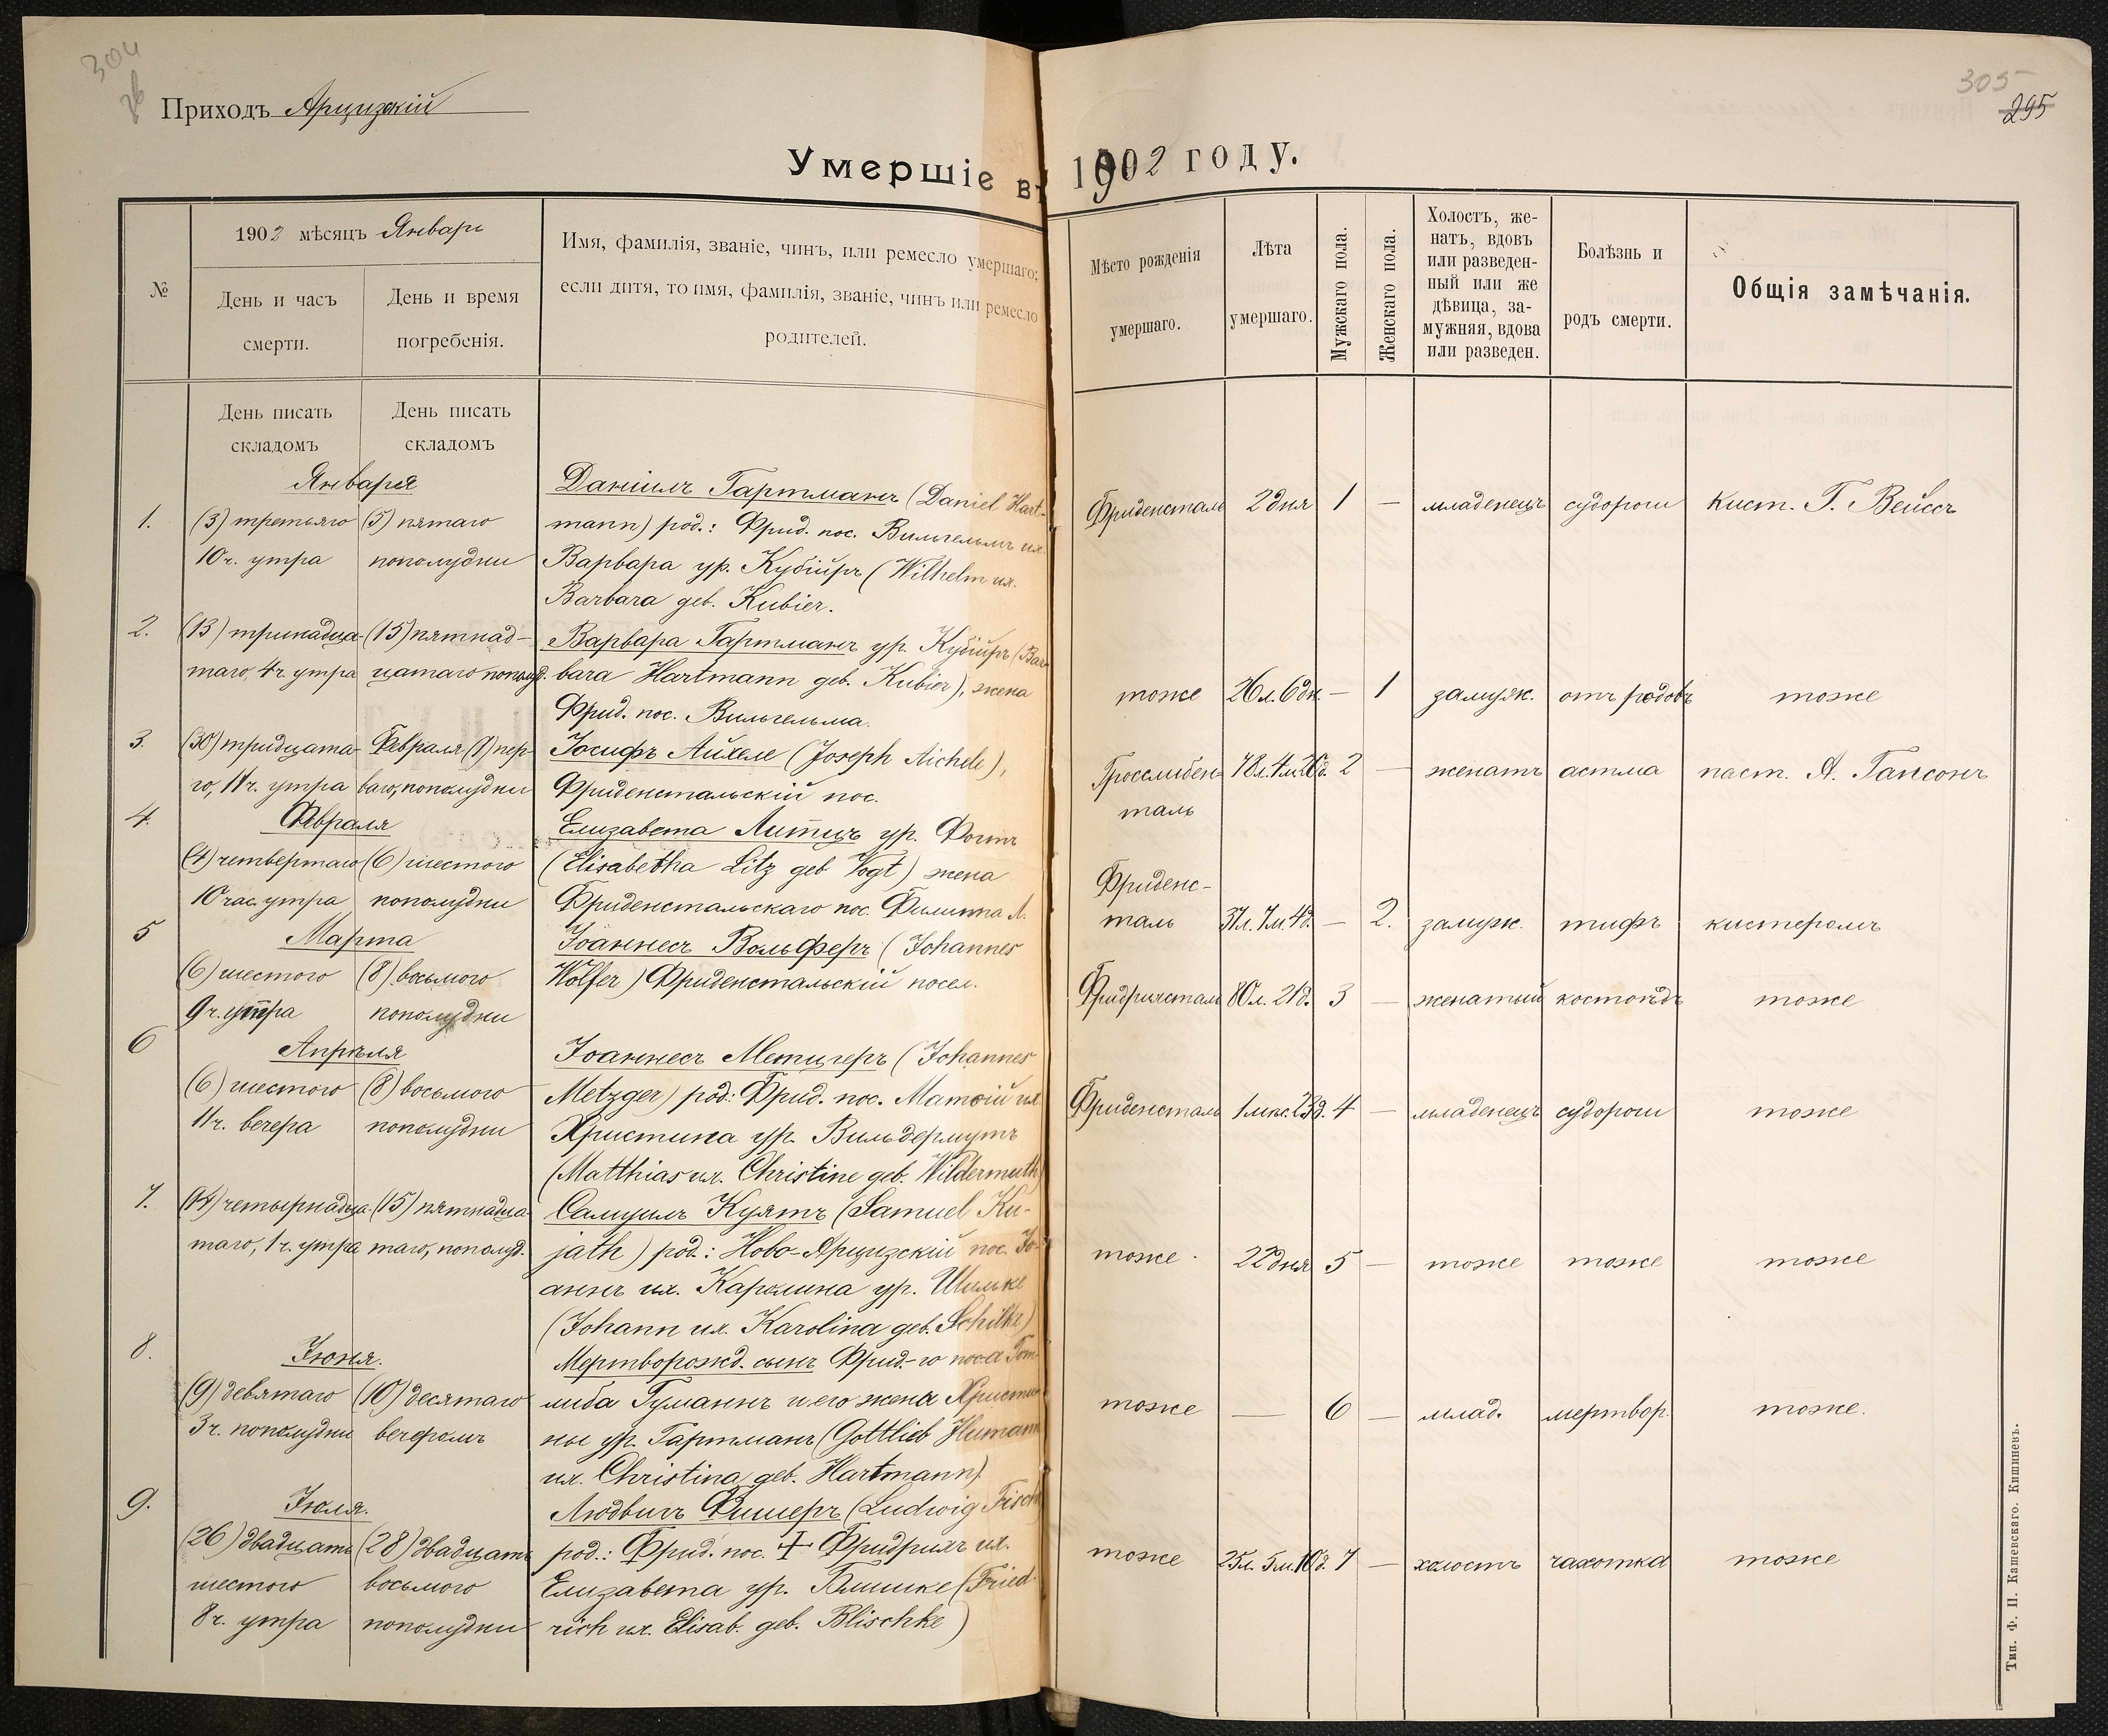 304
Приходъ Арцизскій
305
295
Умершіе въ 1902 году.
№
1902 мѣсяцъ Январь
День и часъ
смерти.
День и время
погребенія.
Имя, фамилія, званіе, чинъ, или ремесло умершаго;
если дитя, то имя, фамилія, званіе, чинъ или ремесло
родителей.
Мѣсто рожденія
умершаго.
Лѣта
умершаго.
Мужскаго пола.
Женскаго пола.
Холостъ, же-
натъ, вдовъ
или разведен-
ный или же
дѣвица, за-
мужняя, вдова
или разведен.
Болѣзнь и
родъ смерти.
Общія замѣчанія.
День писать
складомъ
День писать
складомъ
Января
1. (3) третьяго (5) пятаго
10 ч. утра пополудни
Даніилъ Гартманъ (Daniel Hart-
mann) род.: Фрид. пос. Вильгельмъ их.
Варвара ур. Кубійръ (Wilhelm их.
Barbara geb. Kubier.
Фриденсталь 2 дня 1 — младенецъ судороги Кист. Г. Вейссъ
2. (13) тринадца- (15) пятнад-
таго, 4 ч. утра цатаго пополуд.
Варвара Гартманъ ур. Кубійръ (Bar-
bara Hartmann geb. Kubier), жена
Фрид. пос. Вильгельма.
тоже 26 л. 6 дн. — 1 замуж. отъ родовъ тоже
3. (30) тридцата- Февраля (1) пер-
го, 11 ч. утра ваго, пополудни
Іосифъ Айхеле (Joseph Aichele),
Фриденстальскій пос.
Гросслибен-
таль
2 — женатъ астма паст. А. Гансонъ
4. Февраля
(4) четвертаго (6) шестого
10 час. утра пополудни
Елизавета Литцъ ур. Фогтъ
(Elisabetha Litz geb Vogt) жена
Фриденстальскаго пос. Филиппа Л.
Фриденс-
таль 37 л. 7 м. 4 д. — 2. замуж. тифъ кистеромъ
5 Марта
(6) шестого (8) восьмого
9 ч. утра пополудни
Іоаннесъ Вольферъ (Johannes
Wolfer) Фриденстальскій посел.
Фридрихсталь 80 л. 21 д. 3 — женатый костоѣдъ тоже
6 Апрѣля
(6) шестого (8) восьмого
11 ч. вечера пополудни
Іоаннесъ Метцгеръ (Johannes
Metzger) род: Фрид. пос. Матѳій их
Христина ур. Вильдермутъ
(Matthias их. Christine geb. Wildermuth)
Фриденсталь 1 мѣс. 23 д. 4 — младенецъ судороги тоже
7. (14) четырнадца- (15) пятнадца-
таго, 1 ч. утра таго, пополуд.
Самуилъ Куятъ (Samuel Ku-
jath) род.: Ново-Арцизскій пос. Іо-
аннъ их. Каролина ур. Шильке
(Johann их. Karolina geb. Schilke)
тоже 22 дня 5 — тоже тоже тоже
8. Іюня.
(9) девятаго (10) десятаго
3 ч. пополудни вечеромъ
Мертворожд. сынъ Фрид-го пос-а Гот-
либа Гуманнъ и его жена Христи-
ны ур. Гартманъ (Gottlieb Humann
их. Christina geb. Hartmann)
тоже — 6 — млад. мертвор. тоже.
9. Іюля.
(26) двадцать (28) двадцать
шестого восьмого
8 ч. утра пополудни
Людвигъ Фишеръ (Ludwig Fisch
род.: Фрид. пос. + Фридрихъ их.
Елизавета ур. Блишке (Fried-
rich их. Elisab. geb. Blischke)
тоже 25 л. 5 м. 10 д. 7 — холостъ чахотка тоже
Тип. Ф. П. Кашевскаго. Кишиневъ.